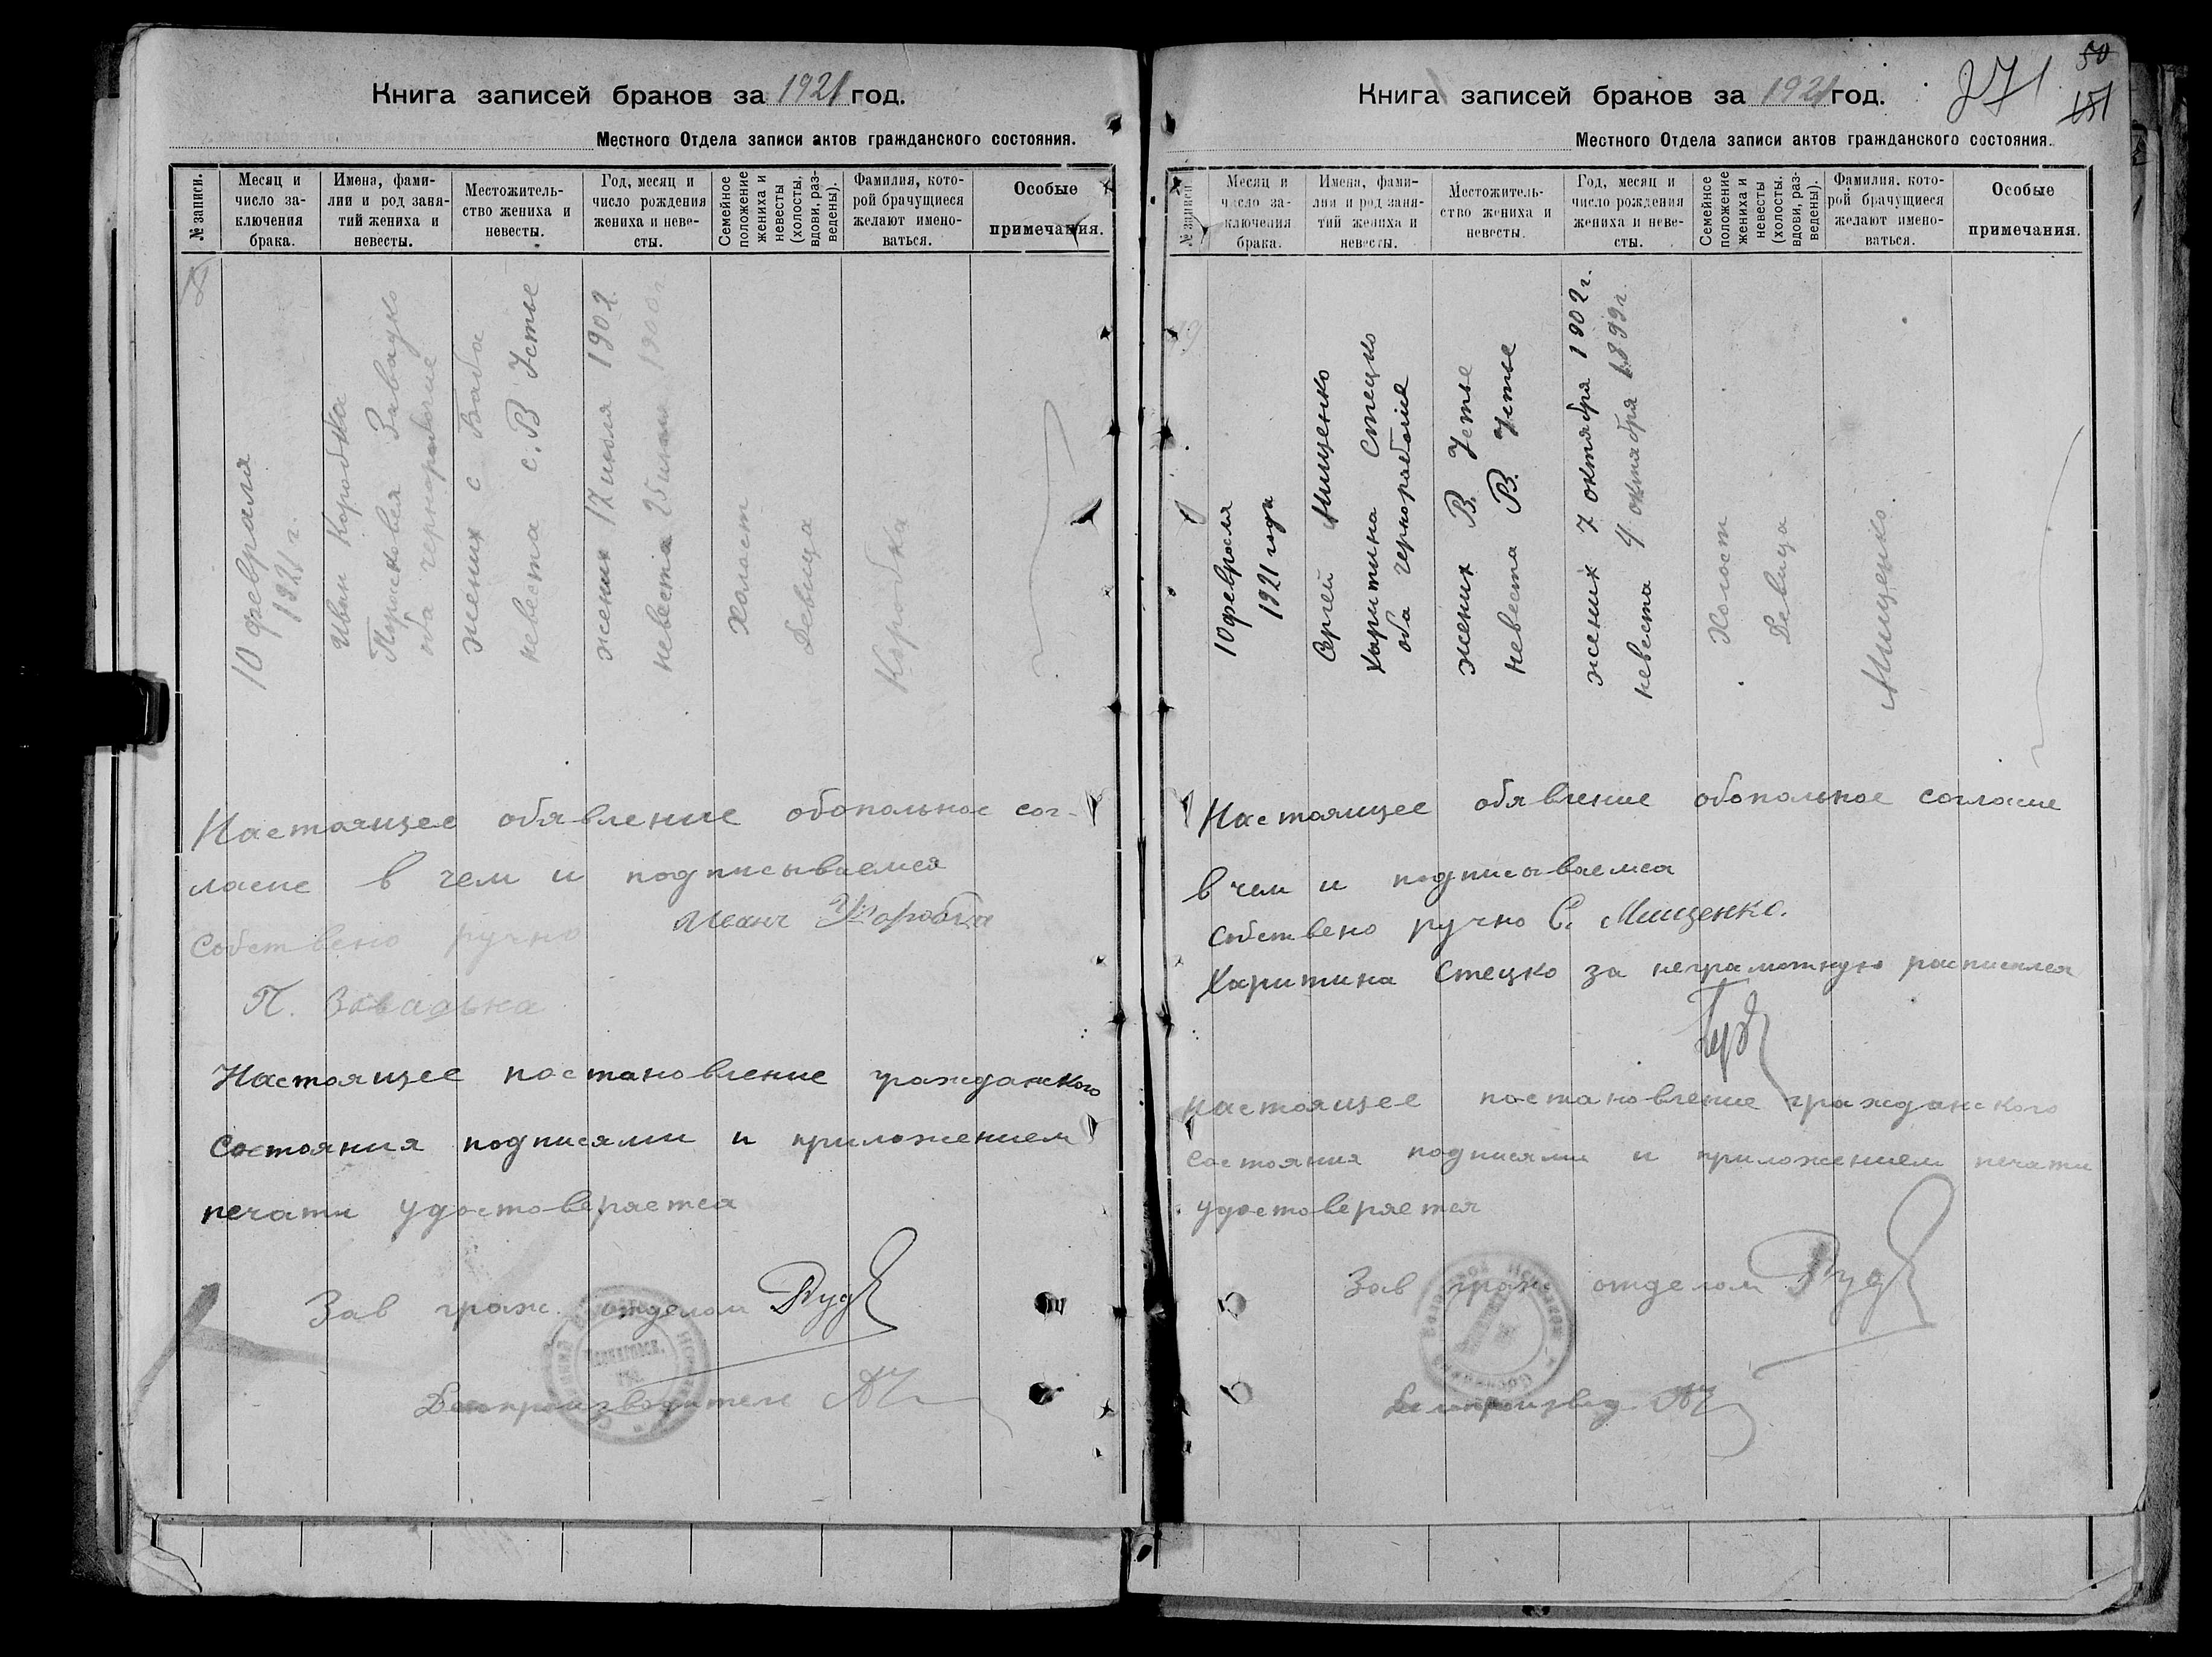 Книга записей браков за 1921 год.
Местного Отдела записи актов гражданского состояния.
№ записи.
Месяц и число заключения брака.
Имена, фамилии и род занятий жениха и невесты.
Местожительство жениха и невесты.
Год, месяц и число рождения жениха и невесты.
Семейное положение жениха и невесты (холосты, вдови, разведены).
Фамилия, которой брачущиеся желают именоваться.
Особые примечания.
10 февраля
1921 г.
Иван Коробка
Завадко
оба чернорабочие
жених с Баба
невеста с. В Устье
жених 17 июля 1902
невеста 25 1900 г.
Холост
Девица
Коробка
Настоящее обявление обопольное сог-
ласие в чем и подписываемся
Собствено ручно Иван Коробка
П.
Настоящее постановление гражданского
состояния подписями и приложением
печати удостоверяется
Зав граж. отделом
Делопроизводитель
50
271
151
Книга записей браков за 1921 год.
Местного Отдела записи актов гражданского состояния.
№ записи.
Месяц и число заключения брака.
Имена, фамилии и род занятий жениха и невесты.
Местожительство жениха и невесты.
Год, месяц и число рождения жениха и невесты.
Семейное положение жениха и невесты (холосты, вдови, разведены).
Фамилия, которой брачущиеся желают именоваться.
Особые примечания.
10 февраля
1921 года
Сергей Мищенко
Харитина Стецко
оба чернорабочие
жених В. Устье
невеста В. Устье
жених 7 октября 1902 г.
невеста 4 октября 1899 г.
Холост
Девица
Мищенко
Настоящее обявление обопольное согласие
в чем и подписываемся
Собствено ручно С. Мищенко.
Харитина Стецко за неграмотную расписался
Настоящее постановление гражданского
состояния подписями и приложением печати
удостоверяется
Зав граж отделом
Делопроизвод.